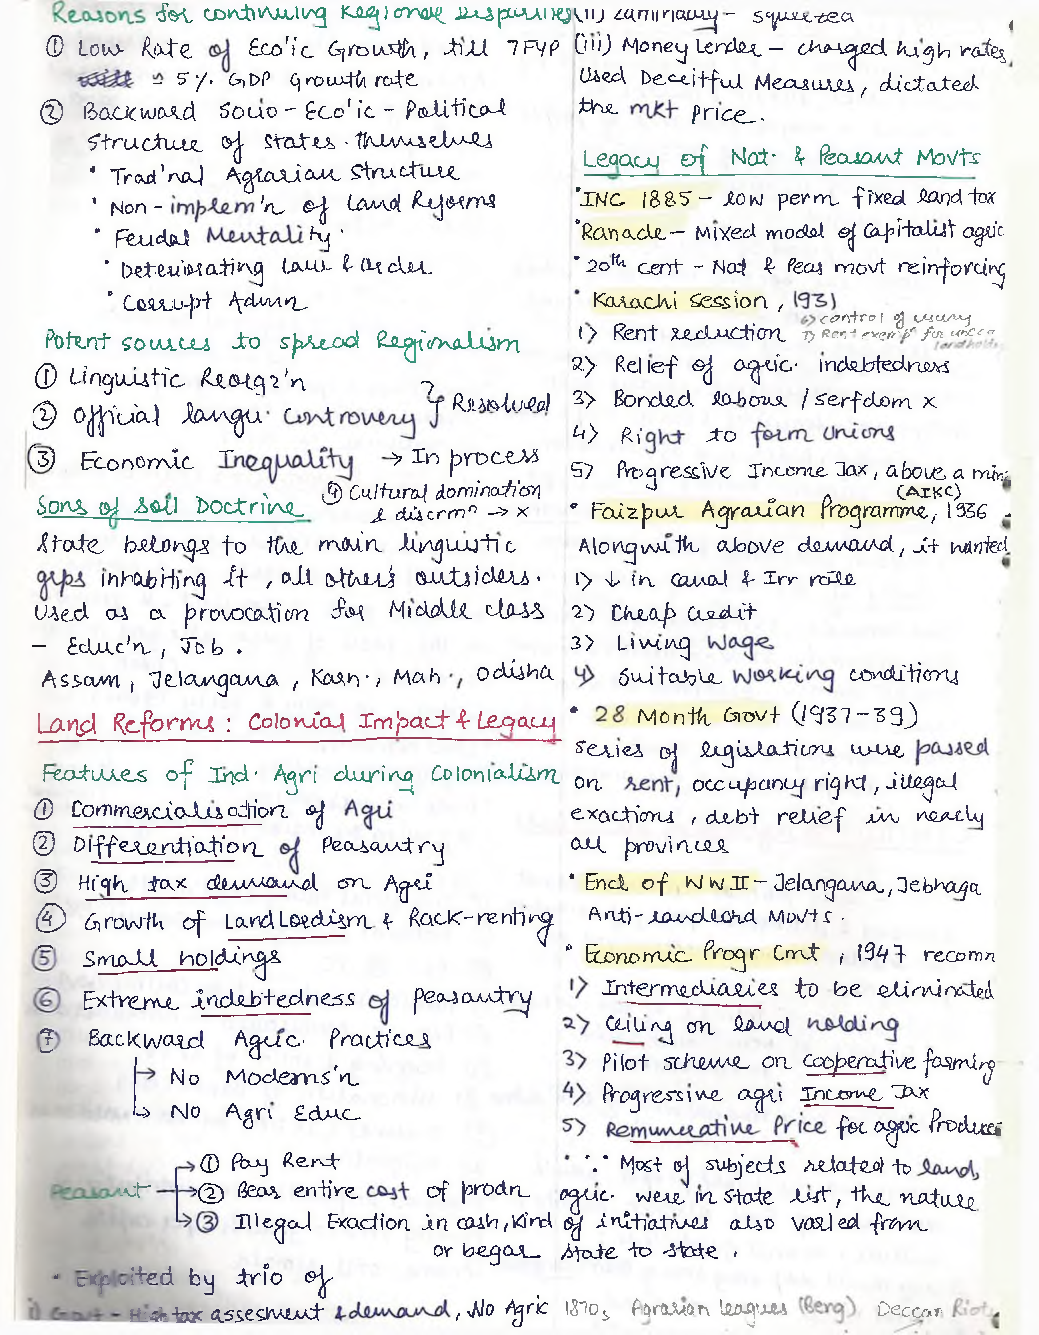 Reasons for continuing Regional Disparities
① Low Rate of Eco'ic Growth, till 7FYP
≃ 5%. GDP growth rate
② Backward Socio-Eco'ic-Political
Structure of states themselves
• Trad'nal Agrarian Structure
• Non-implem'n of Land Reforms
• Feudal Mentality.
• Deteriorating Law & Order
• Corrupt Admn
Potent sources to spread Regionalism
① Linguistic Reorgz'n
② Official langu. controvery } Resolved
③ Economic Inequality → In process
④ Cultural domination
& discrmⁿ → x
Sons of Soil Doctrine
State belongs to the main linguistic
grps inhabiting it, all others outsiders.
Used as a provocation for Middle class
- Educ'n, Job.
Assam, Telangana, Karn., Mah., Odisha
Land Reforms: Colonial Impact & Legacy
Features of Ind. Agri during Colonialism
① Commercialisation of Agri
② Differentiation of Peasantry
③ High tax demand on Agri
④ Growth of Landlordism & Rack-renting
⑤ Small holdings
⑥ Extreme indebtedness of peasantry
⑦ Backward Agric. Practices
→ No Moderns'n
→ No Agri Educ
→ ① Pay Rent
Peasant → ② Bear entire cost of prodn
→ ③ Illegal Exaction in cash, kind
or begar
• Exploited by trio of
i) Govt - High tax assesment & demand, No Agric
(ii) Zamindary - squeezed
(iii) Money Lender - charged high rates,
Used Deceitful Measures, dictated
the mkt price.
Legacy of Nat. & Peasant Movts
• INC 1885 - low perm fixed land tax
• Ranade - Mixed model of Capitalist agric
• 20th cent - Nat & Peas movt reinforcing
• Karachi Session, 1931
6) control of usury
1) Rent reduction 7) Rent exemp' for
2) Relief of agric. indebtedness
3) Bonded labour / serfdom x
4) Right to form Unions
5) Progressive Income Tax, above a min
(AIKC)
• Faizpur Agrarian Programme, 1936
Alongwith above demand, it wanted
1) ↓ in canal & Irr rate
2) Cheap Credit
3) Living Wage
4) Suitable Working conditions
• 28 Month Govt (1937-39)
Series of legislations were passed
on rent, occupancy right, illegal
exactions, debt relief in nearly
all provinces
• End of WWII - Telangana, Tebhaga
Anti-landlord Movts.
• Economic Progr Cmt, 1947 recomn
1) Intermediaries to be eliminated
2) Ceiling on land holding
3) Pilot scheme on cooperative farming
4) Progressive agri Income Tax
5) Remunerative Price for agric Produce
• ∵ Most of subjects related to land,
agric. were in state list, the nature
of initiatives also varied from
state to state.
1870s, Agrarian leagues (Beng) Deccan Riot